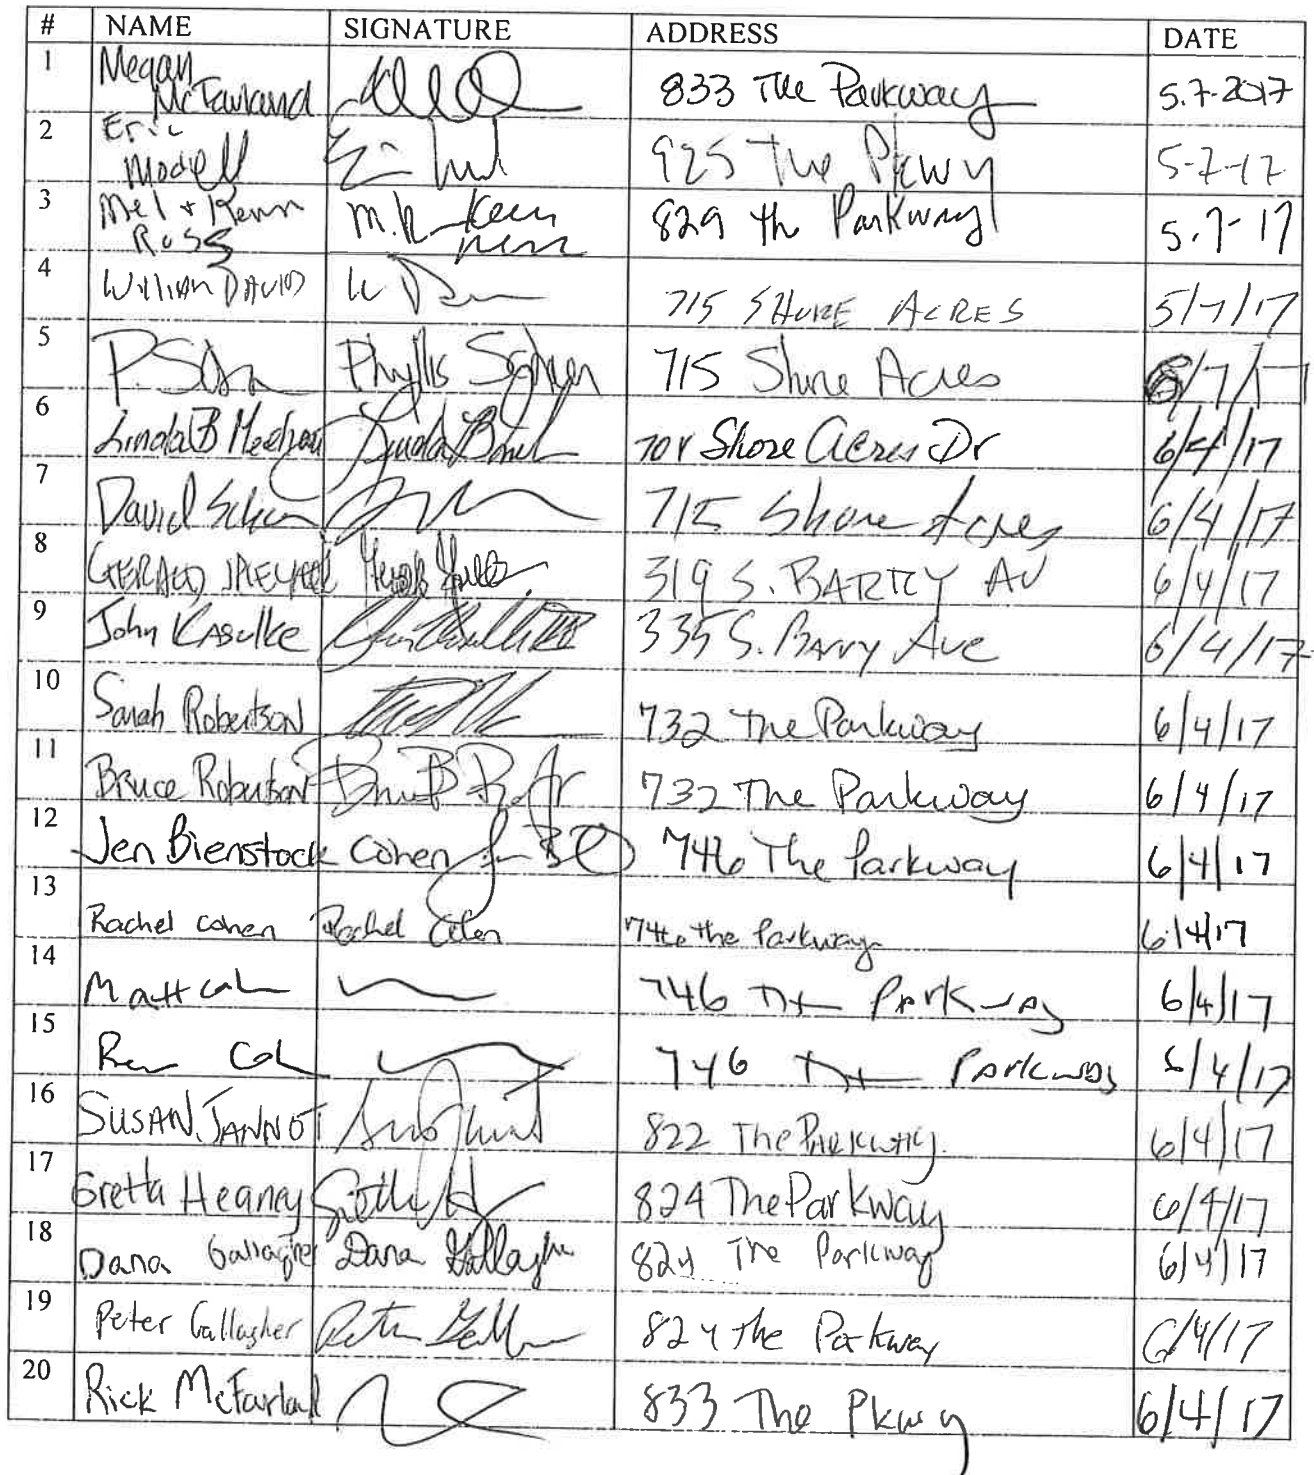 # NAME SIGNATURE ADDRESS DATE
1 Megan McFarland 833 The Parkway 5.7.2017
2 Eric Modell 925 The Pkwy 5-7-17
3 Mel + Kevin Ross 829 the Parkway 5.7-17
4 William David 715 SHORE ACRES 5/7/17
5 Phyllis 715 Shore Acres /7/17
6 Linda B Shore Acres Dr 6/4/17
7 David 715 Shore Acres 6/4/17
8 GERALD 319 S. BARRY AV 6/4/17
9 John Kasulke 335 S. Barry Ave 6/4/17
10 Sarah Robertson 732 The Parkway 6/4/17
11 Bruce Robertson 732 The Parkway 6/4/17
12 Jen Bienstock Cohen 746 The Parkway 6/4/17
13 Rachel Cohen Rachel Cohen 746 the Parkway 6/4/17
14 Matt 746 The Parkway 6/4/17
15 746 The Parkway 6/4/17
16 SUSAN JANNOT 822 The Parkway 6/4/17
17 Gretta Heaney 824 The Parkway 6/4/17
18 Dana Gallagher Dana Gallagher 824 The Parkway 6/4/17
19 Peter Gallagher 824 the Parkway 6/4/17
20 Rick McFarland 833 The Pkwy 6/4/17